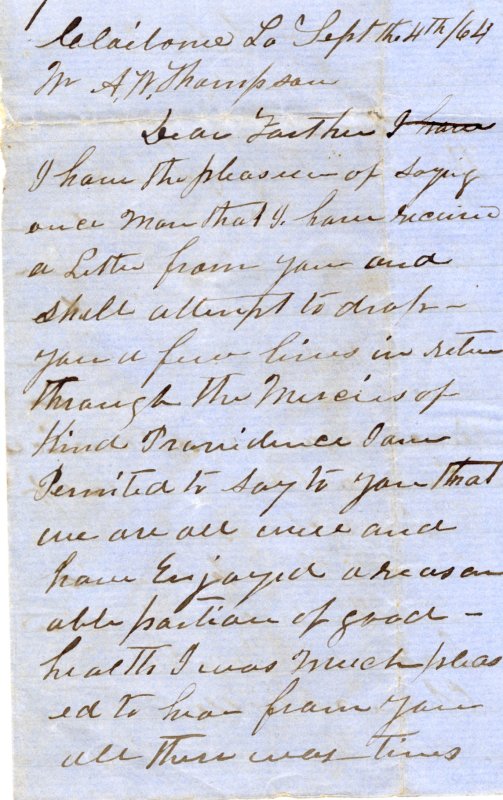 Claiborne La Sept the 4th /64
Mr A. W. Thompson
Dear Farther I have
I have the pleasure of saying
once More that I. have receive
a Letter from you and
shall attempt to drop-
you a few lines in retur
through the Mercies of
Kind Providence I am
Permited to say to you that
we are all well and
have Enjoyed a reason
able portion of good-
health I was Much pleas
ed to hear from you
all these war times